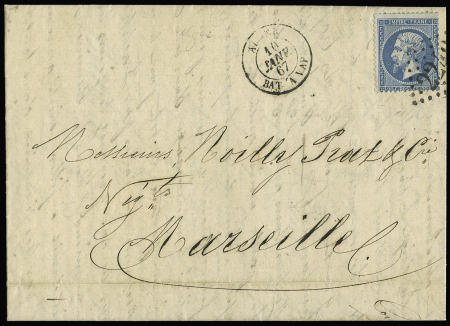 10
JANV
67
BAT. A VAP
EMPIRE FRANC
Messieurs Noilly Prat & Cie
Négts
Marseille